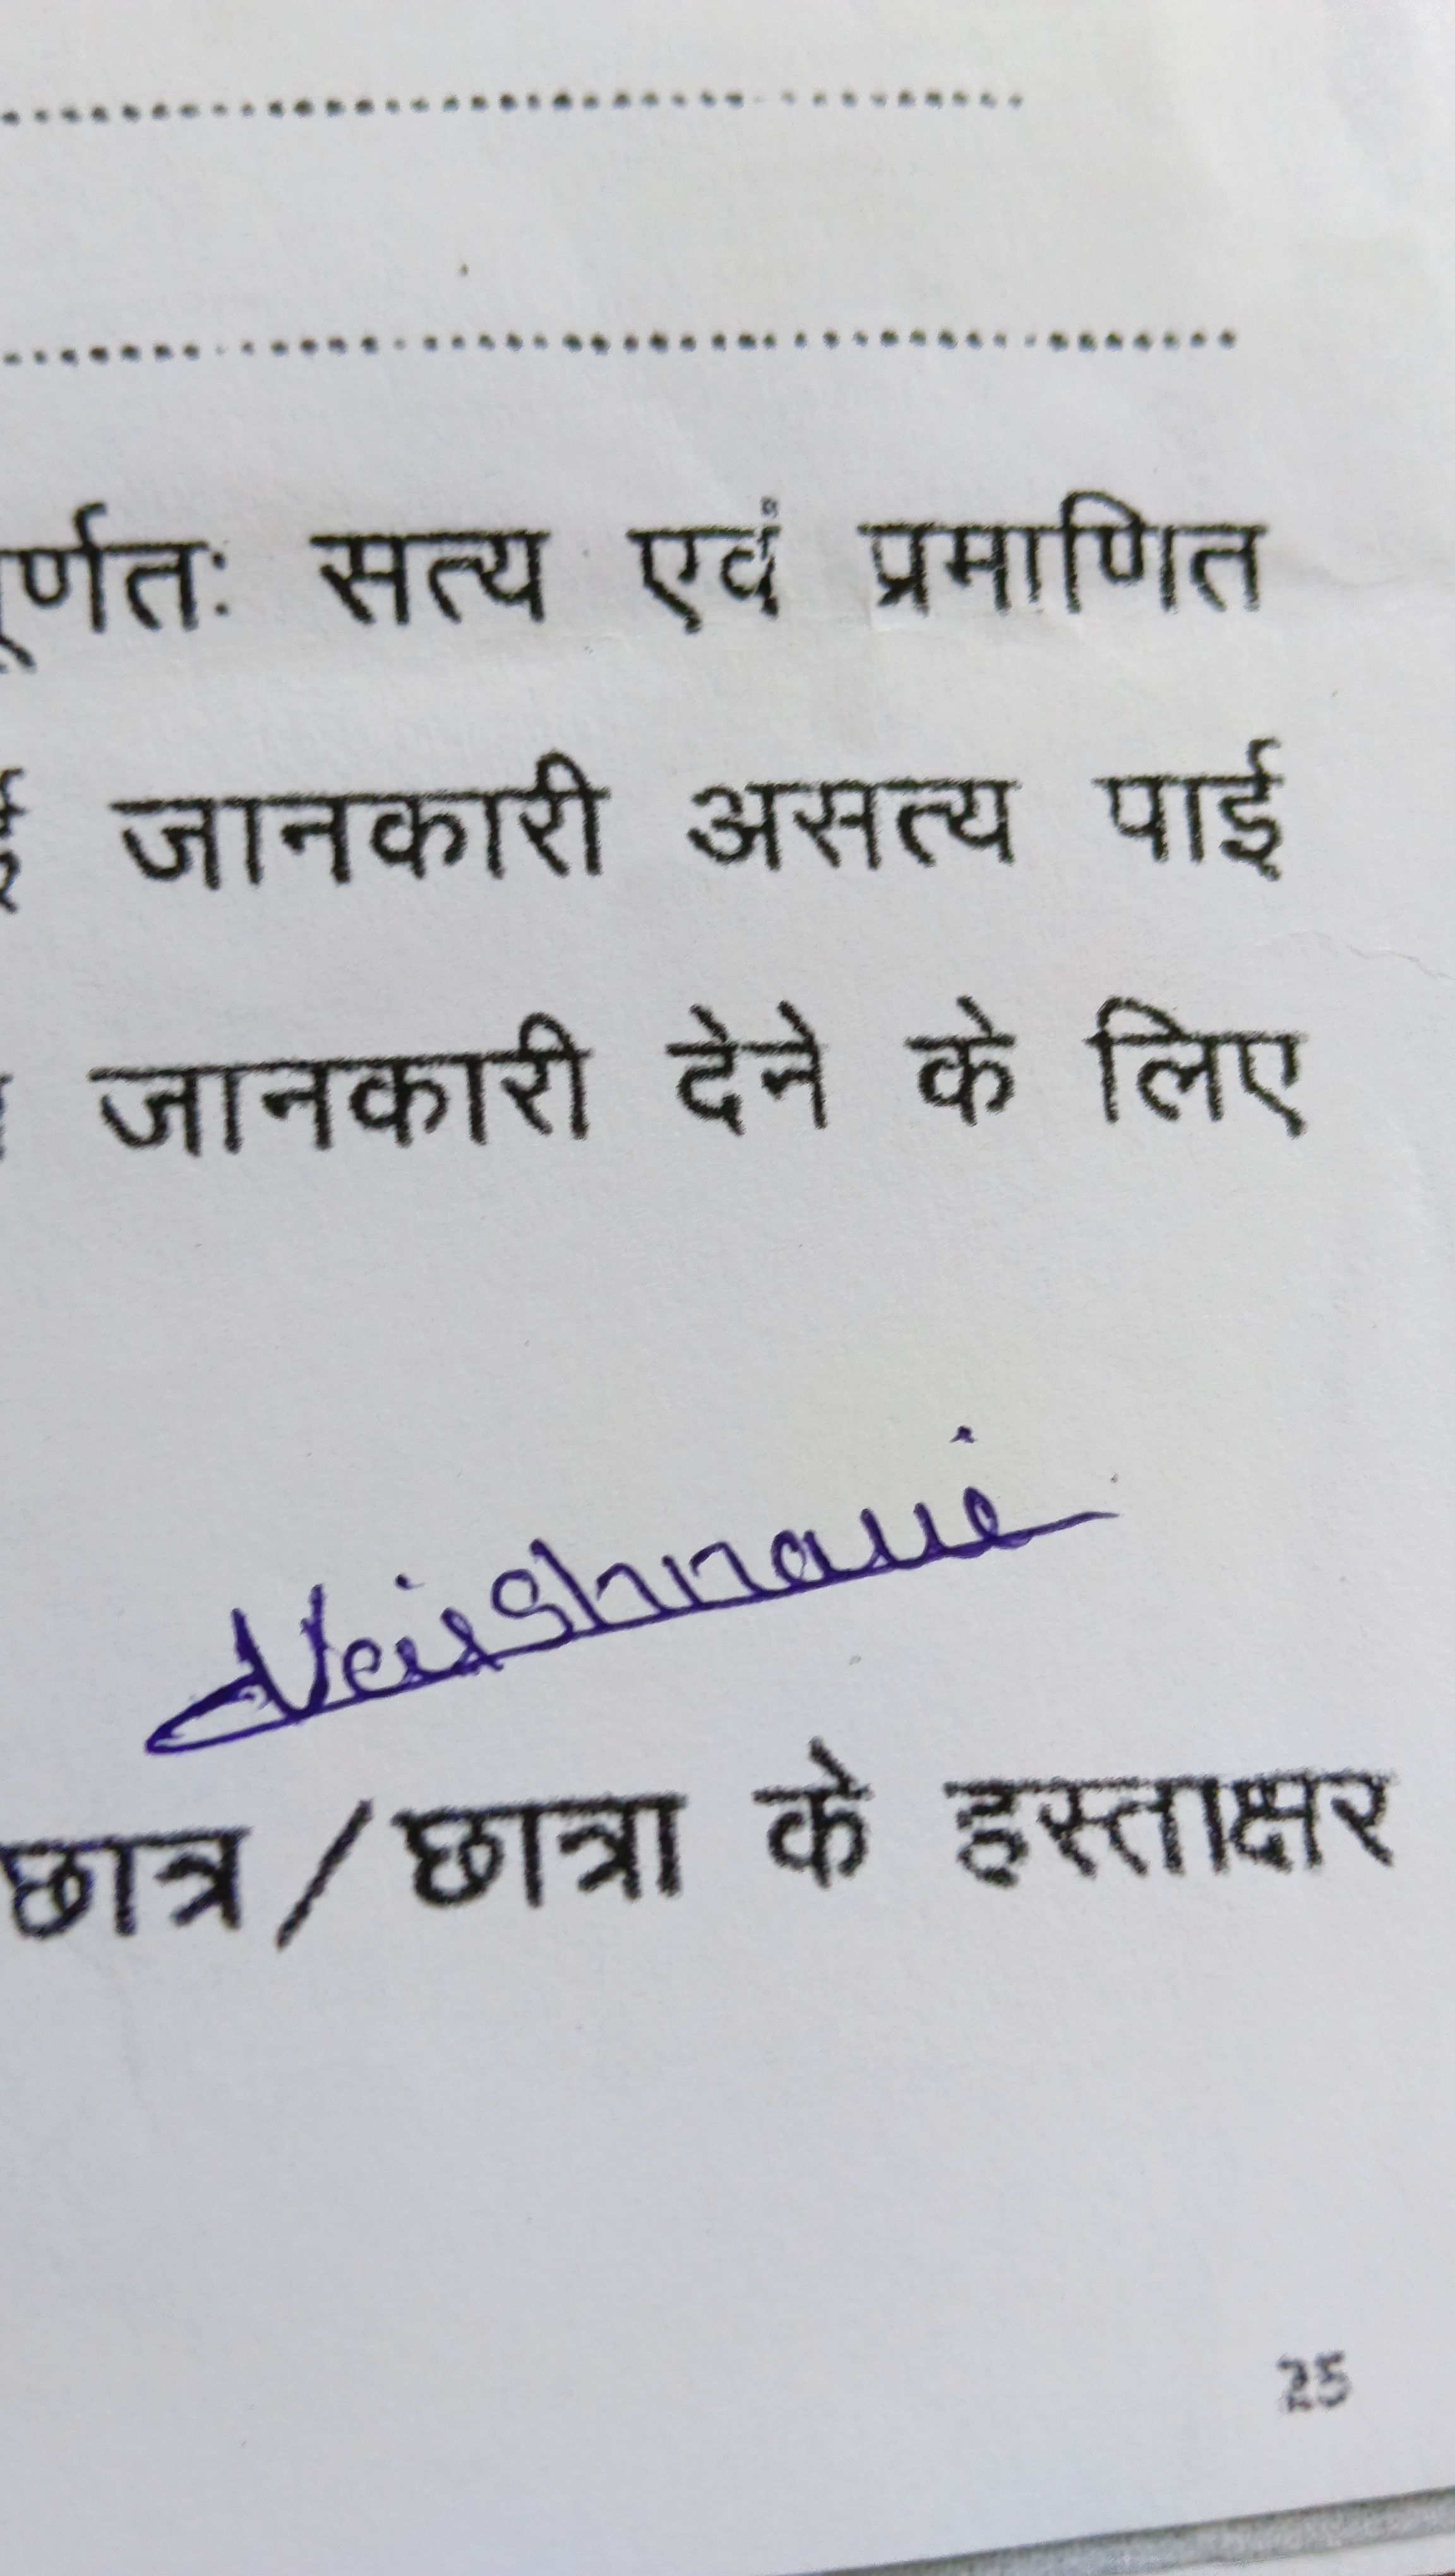 ........................................................
........................................................
पूर्णतः सत्य एवं प्रमाणित
जानकारी असत्य पाई
जानकारी देने के लिए
Vaishnavi
छात्र/छात्रा के हस्ताक्षर
25